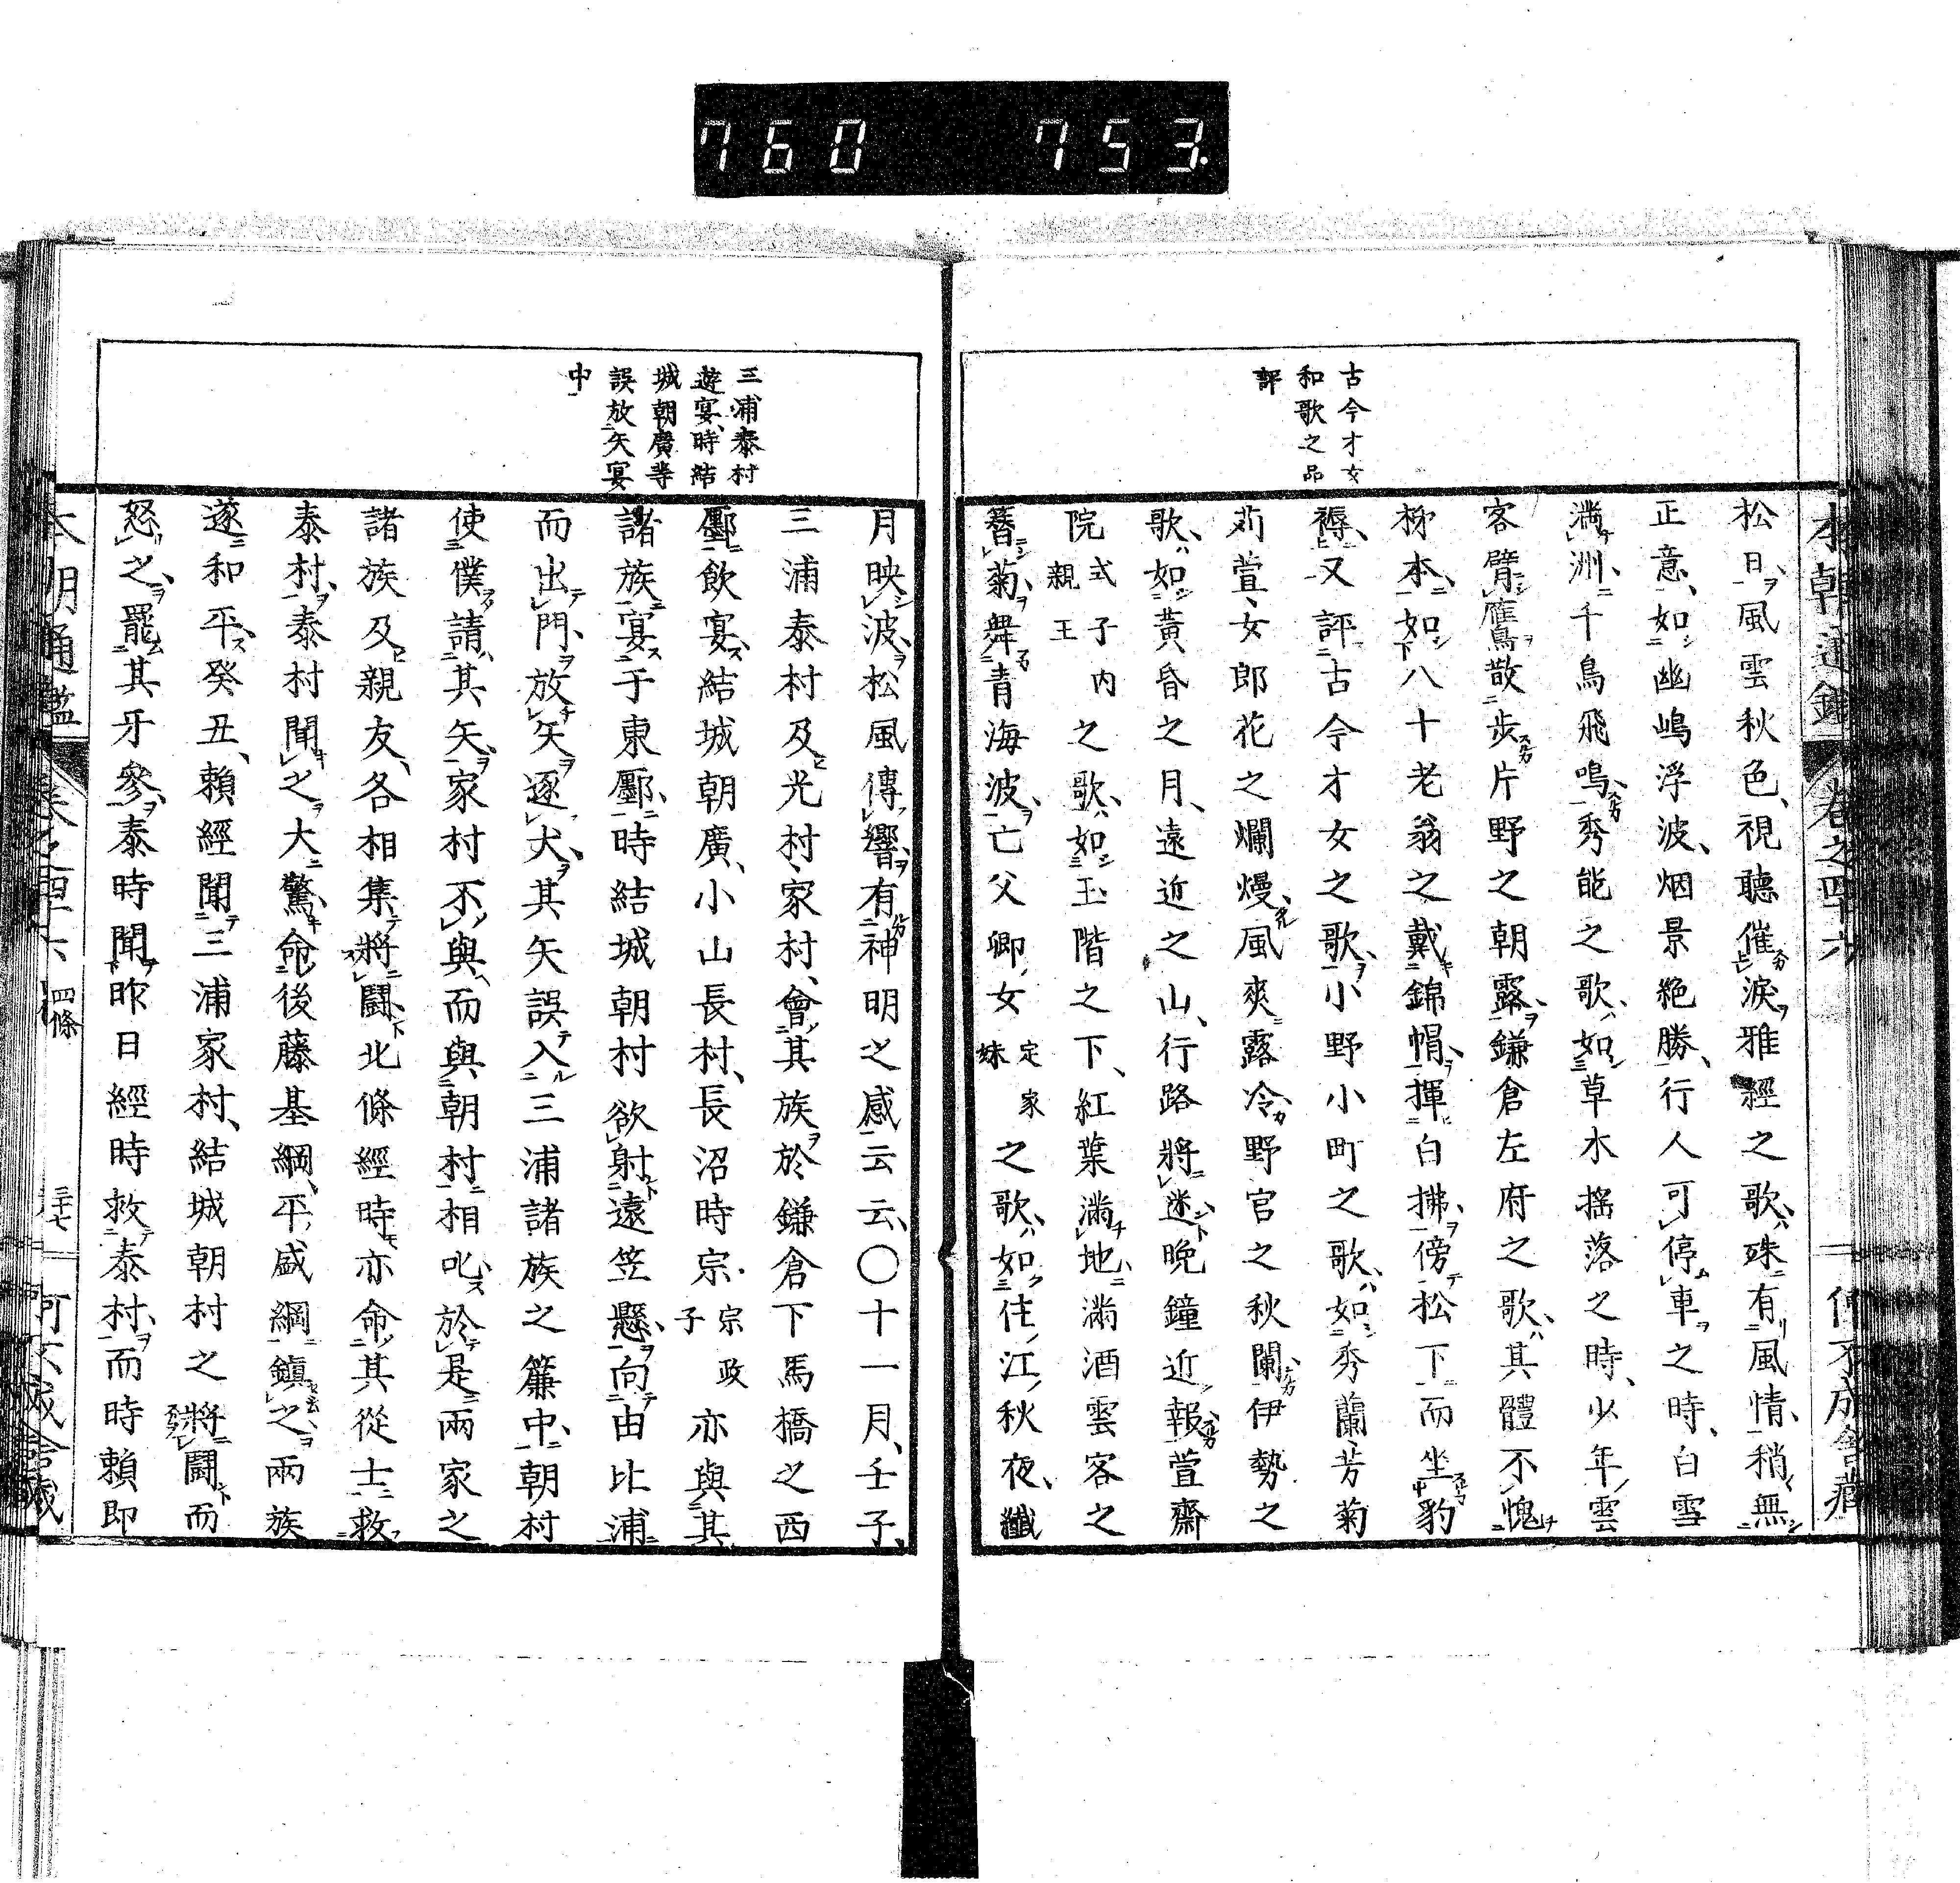 760 753
本朝通鑑 卷之四十六 佇不成舍藏
古今才女
和歌之品
評
松日風雲秋色、視聽催淚雅經之歌、殊有風情、稍無
正意、如幽嶋浮波、烟景絶勝、行人可停車之時、白雪
滿洲、千鳥飛鳴、秀能之歌、如草木搖落之時、少年雲
客臂鷹散步片野之朝露、鎌倉左府之歌、其體不愧
柹本、如八十老翁之戴錦帽、揮白拂、傍松下而坐豹
褥、又評古今才女之歌、小野小町之歌、如秀蘭、芳菊
苅萱、女郎花之爛熳、風爽露冷野宮之秋闌、伊勢之
歌、如黃昏之月、遠近之山、行路將迷晩鐘近報、萱齋
院式子内親王之歌、如玉階之下、紅葉滿地、滿酒雲客之
簪菊、舞青海波、亡父卿女定家妹之歌、如住江秋夜、纖
三浦泰村
遊宴、時結
城朝廣等
誤放矢宴
中
月映波、松風傳響、有神明之感云云、〇十一月、壬子、
三浦泰村及光村、家村、會其族於鎌倉下馬橋之西
鄽飲宴、結城朝廣、小山長村、長沼時宗宗政子亦與其
諸族宴于東鄽、時結城朝村欲射遠笠懸、向由比浦
而出門、放矢逐犬、其矢誤入三浦諸族之簾中、朝村
使僕請其矢、家村不與、而與朝村相叱、於是兩家之
諸族及親友、各相集將鬪、北條經時亦命其從士救
泰村、泰村聞之大驚、命後藤基綱、平盛綱鎮之、兩族
遂和平、癸丑、賴經聞三浦家村、結城朝村之將鬪而
怒之、罷其牙參、泰時聞昨日經時救泰村、而時賴即
本朝通鑑 卷之四十六 四條 三十七